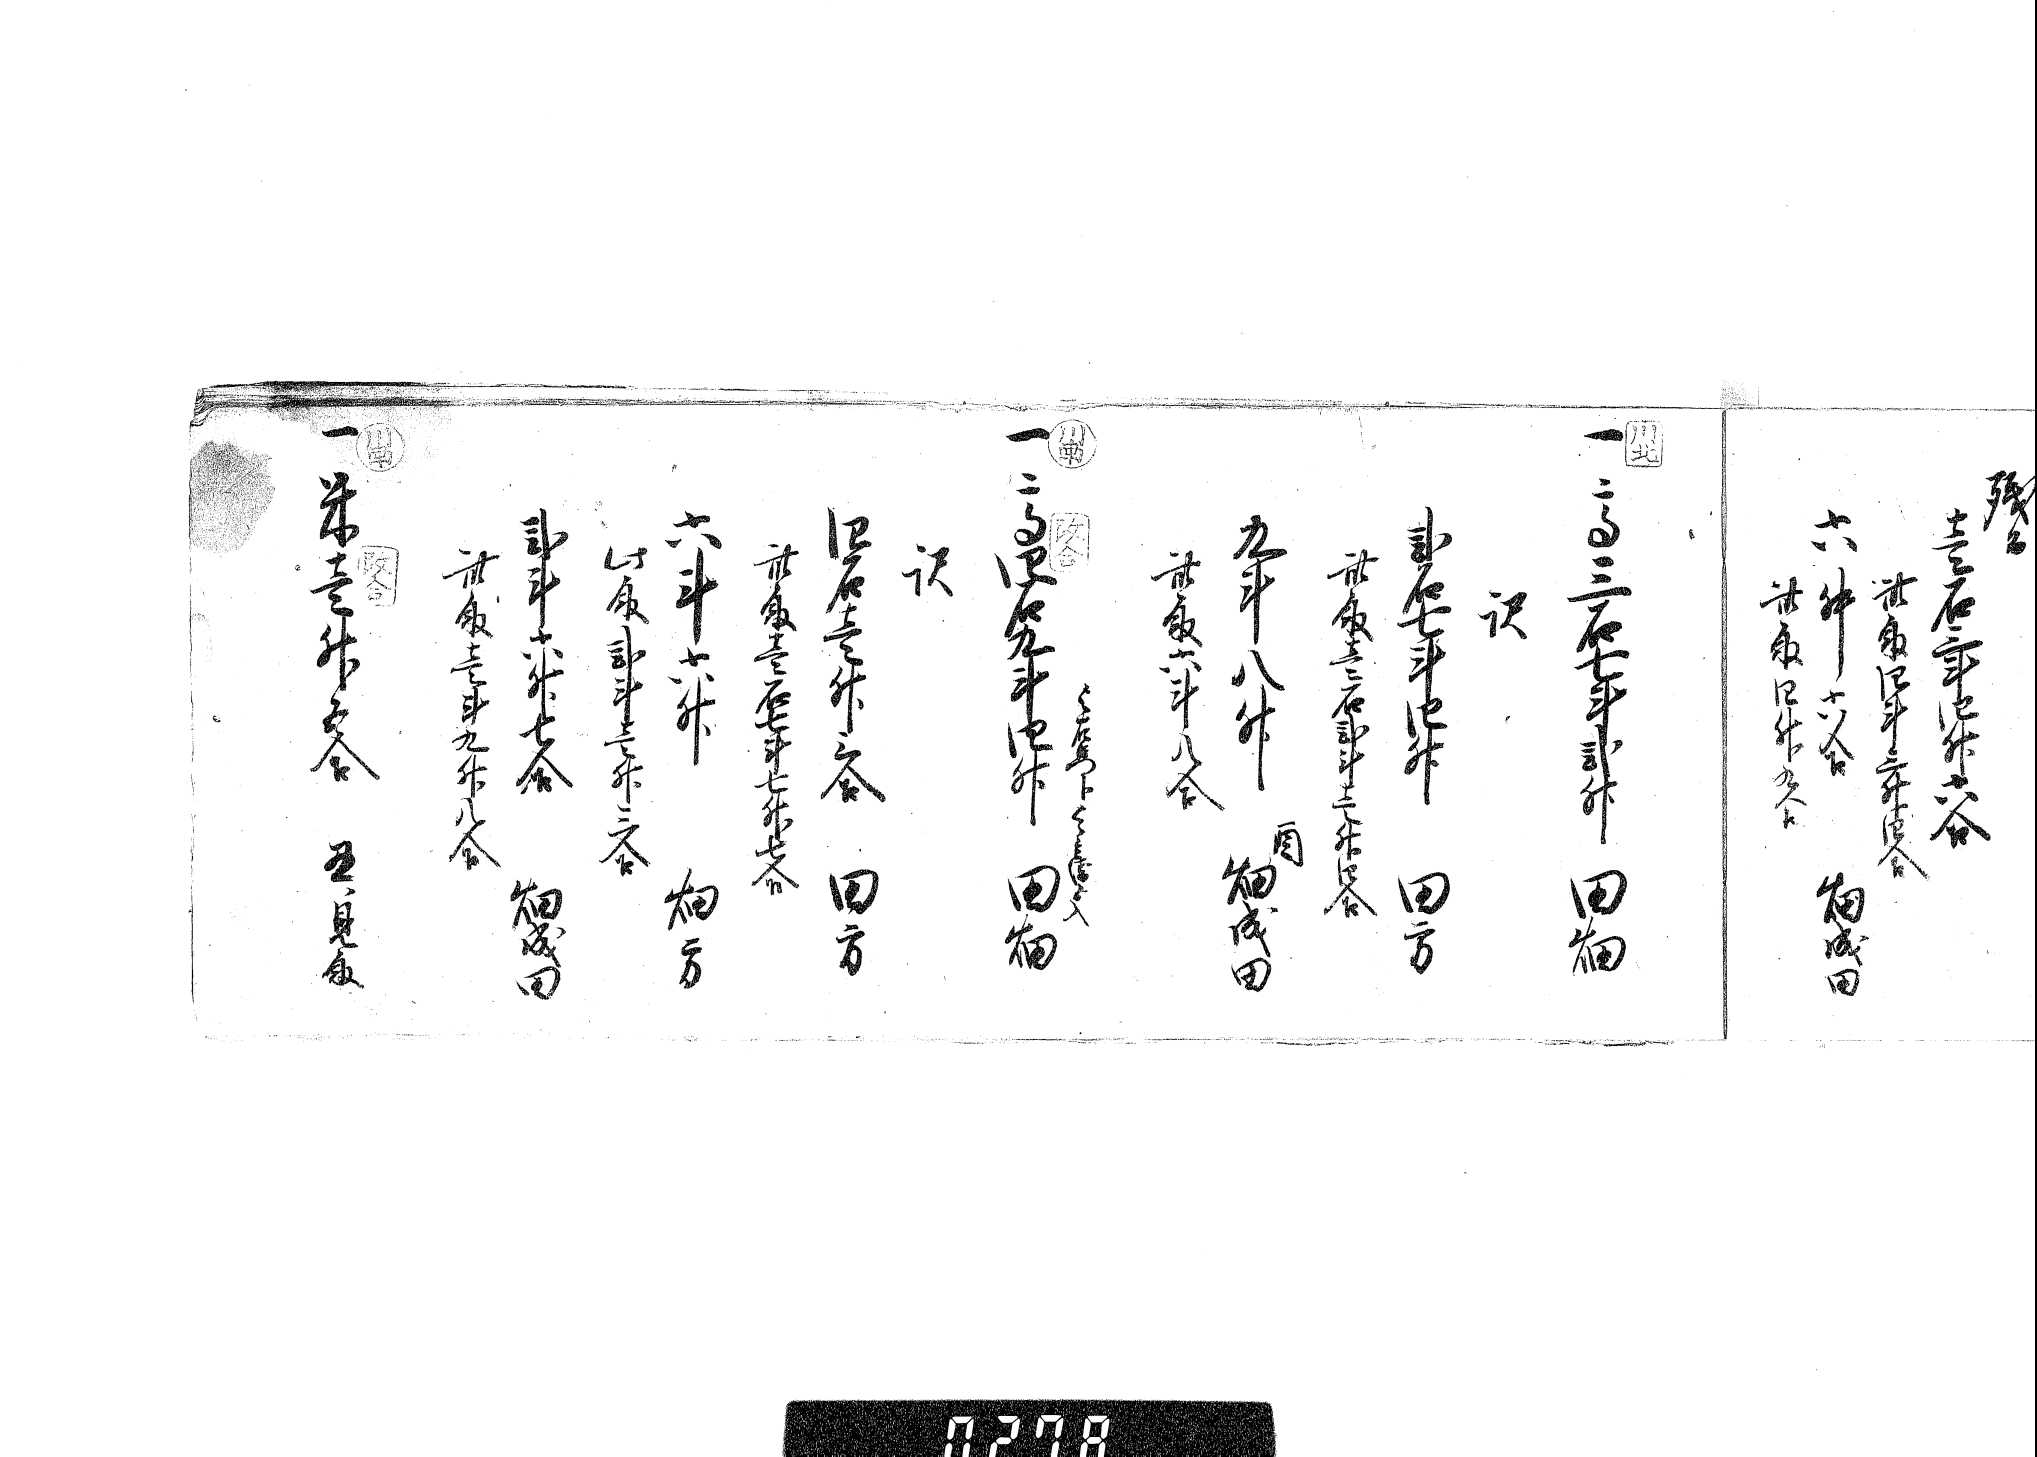 残而
壱石三斗四升六合
此取四斗三升四合
六升六合 畑成田
此取四升九合
川北
一 高三石七斗弐升 田畑
訳
弐石七斗四升 田方
此取壱石弐斗壱升四合
九斗八升 畑成田
酉
此取六斗八合
川南
改合
一 高四石九斗四升 田畑
訳
四石壱升三合 田方
此取壱石七斗七升七合
六斗六升 畑方
此取弐斗壱升三合
弐斗六升七合 畑成田
此取壱斗九升八合
川南
改合
一 米壱升五合 見取
0278